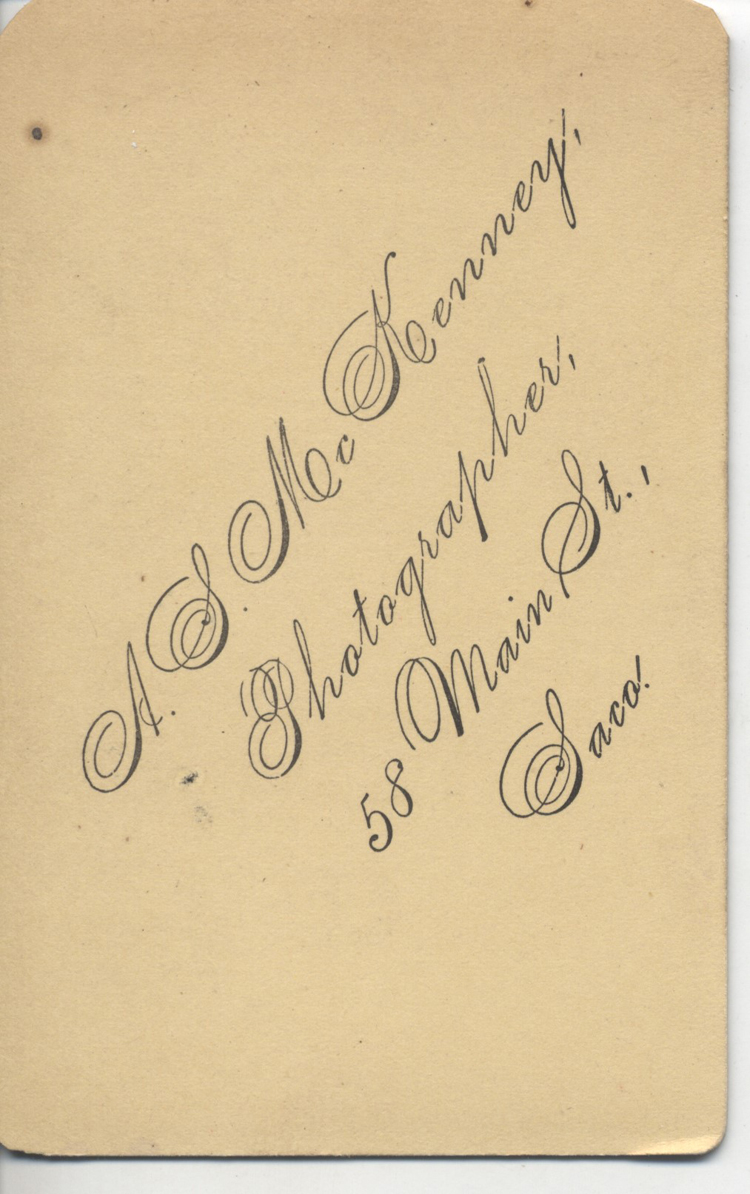 A. S. Mc Kenney,
Photographer,
58 Main St.,
Saco.